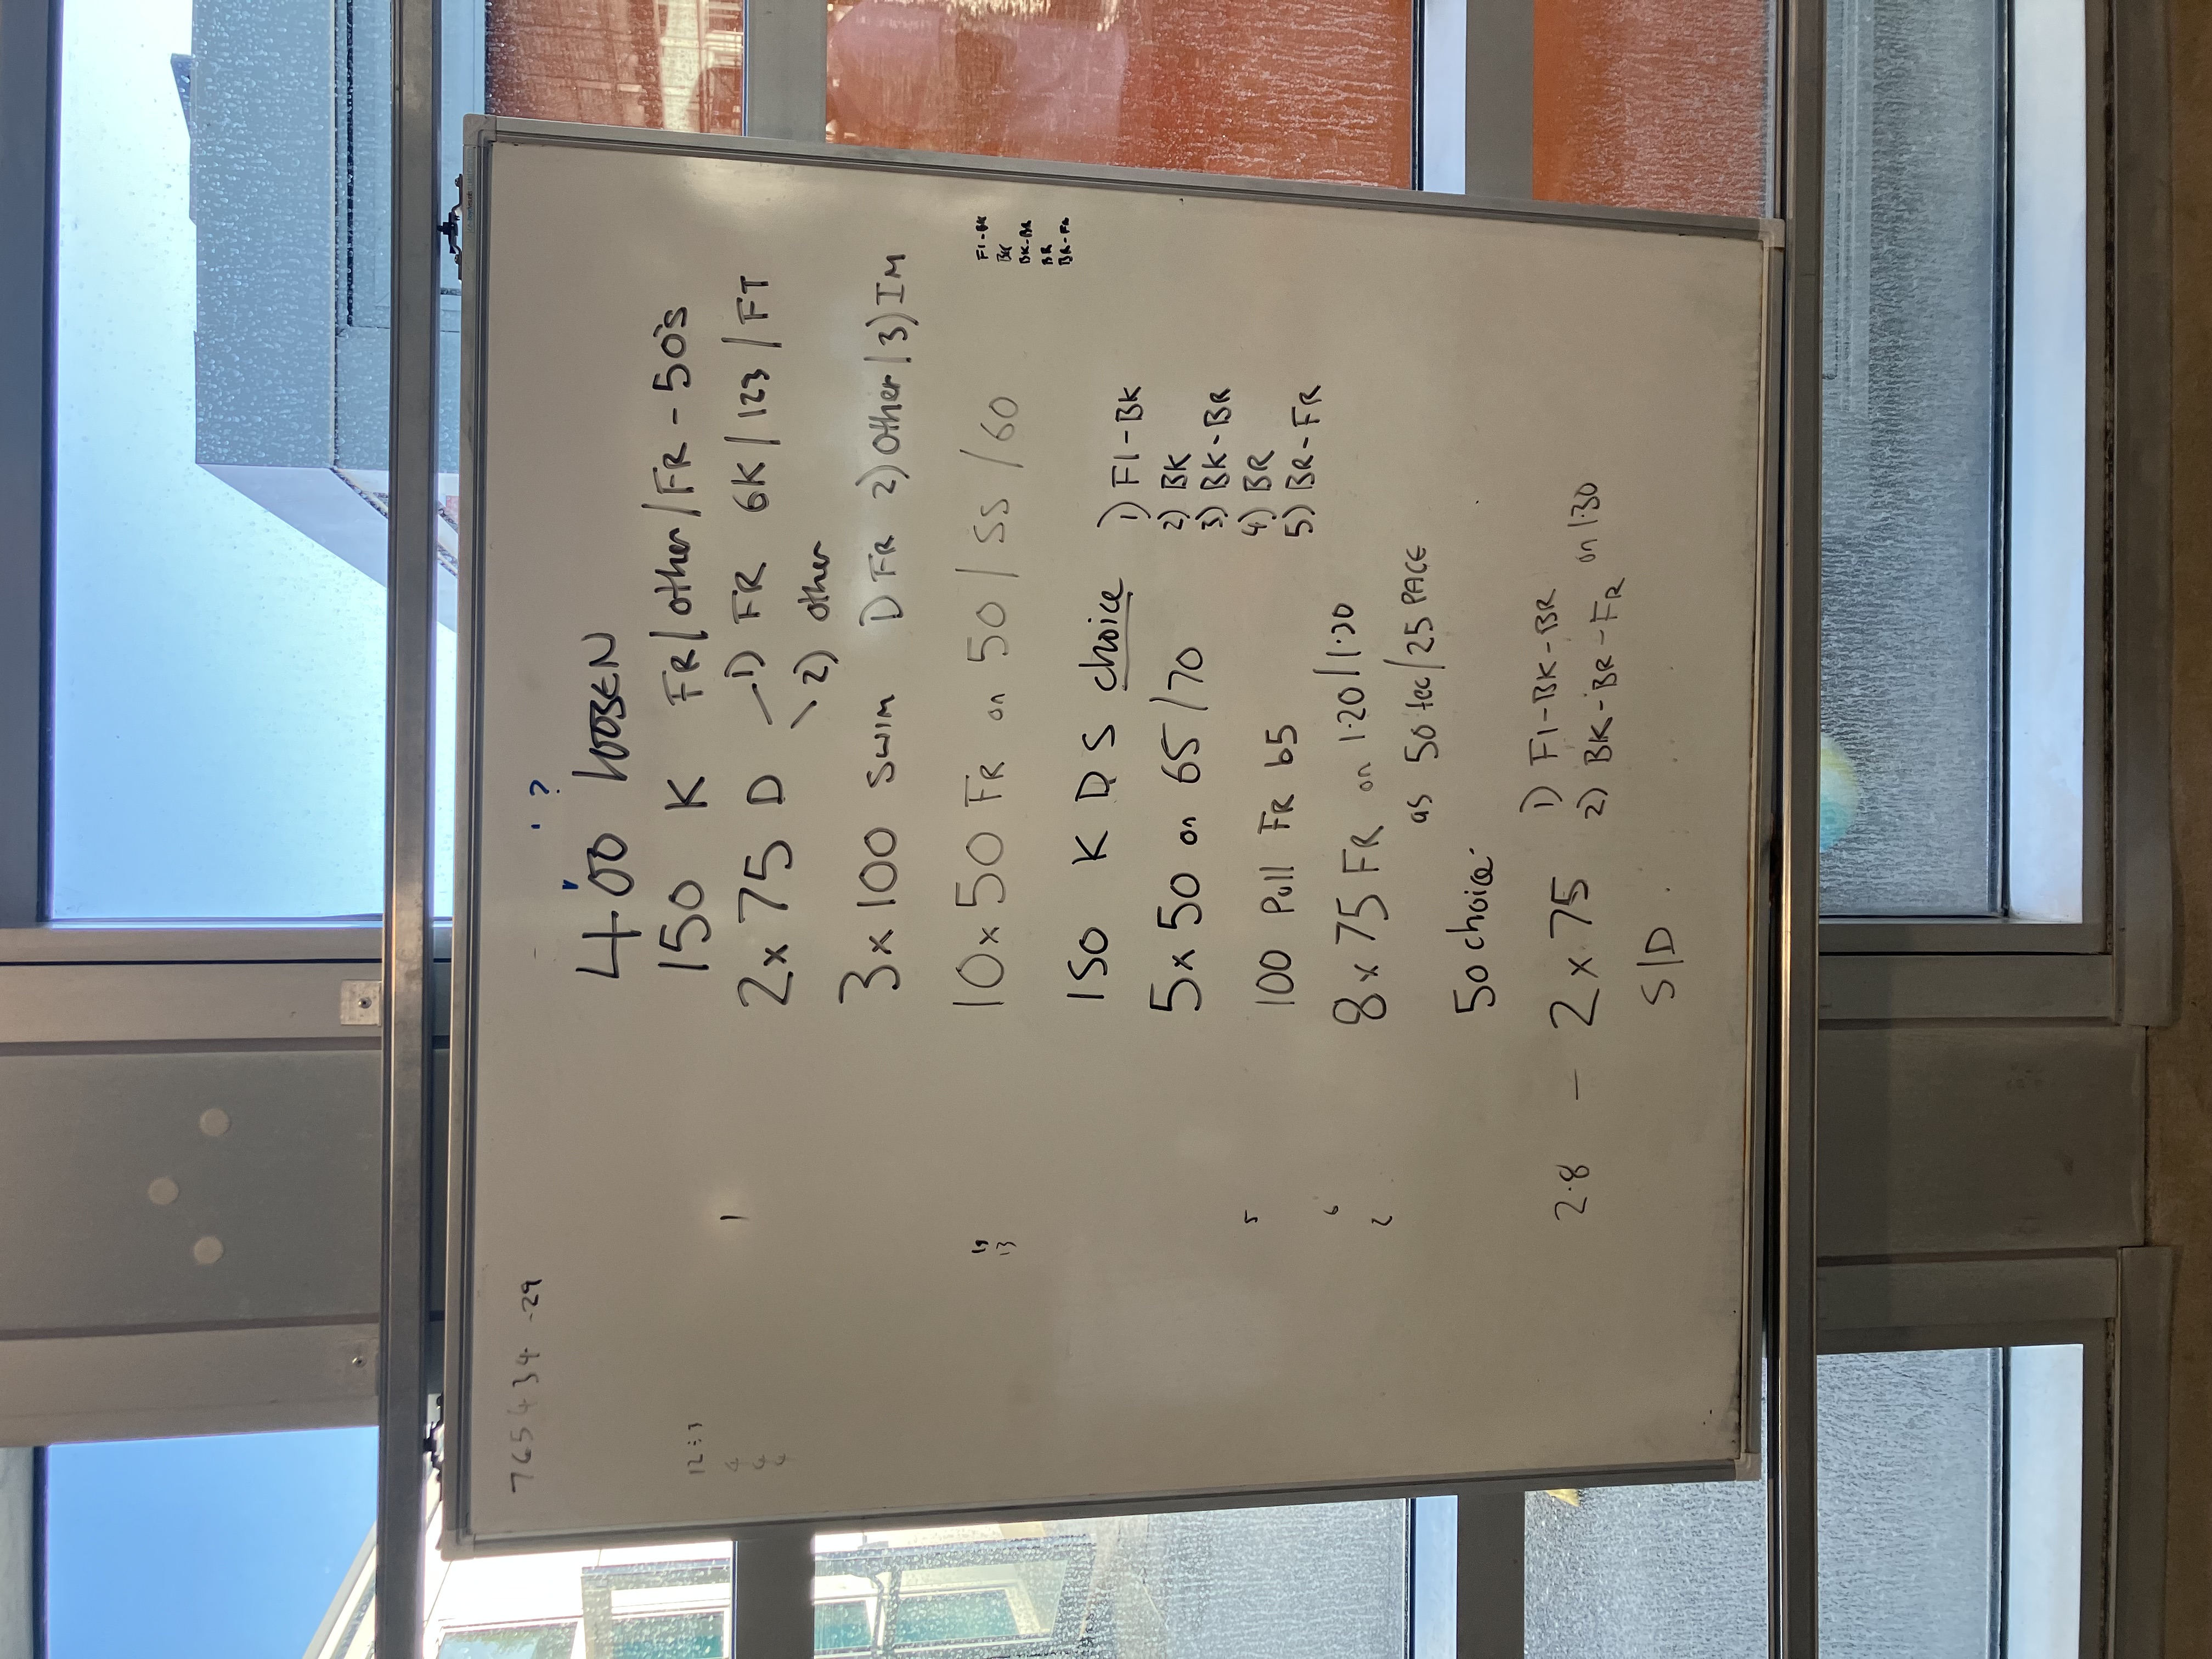 765434 -29
?
400 LOOSEN
150 K FR/other/FR - 50's
12÷3
1
2x75 D 1) FR 6K/123/FT
2) other
3x100 SWIM 1) FR 2) Other/3) IM
10x50 FR on 50/55/60
13
F1-BK
BK
BK-BR
BR
BR-FR
150 K D S choice
5x50 on 65/70
1) F1-BK
2) BK
3) BK-BR
4) BR
5) BR-FR
5
100 Pull FR b5
6
8x75 FR on 1.20/1.30
2
as 50 tec/25 PACE
50 choice
2.8 - 2x75 1) F1-BK-BR
2) BK-BR-FR on 1.30
S/D